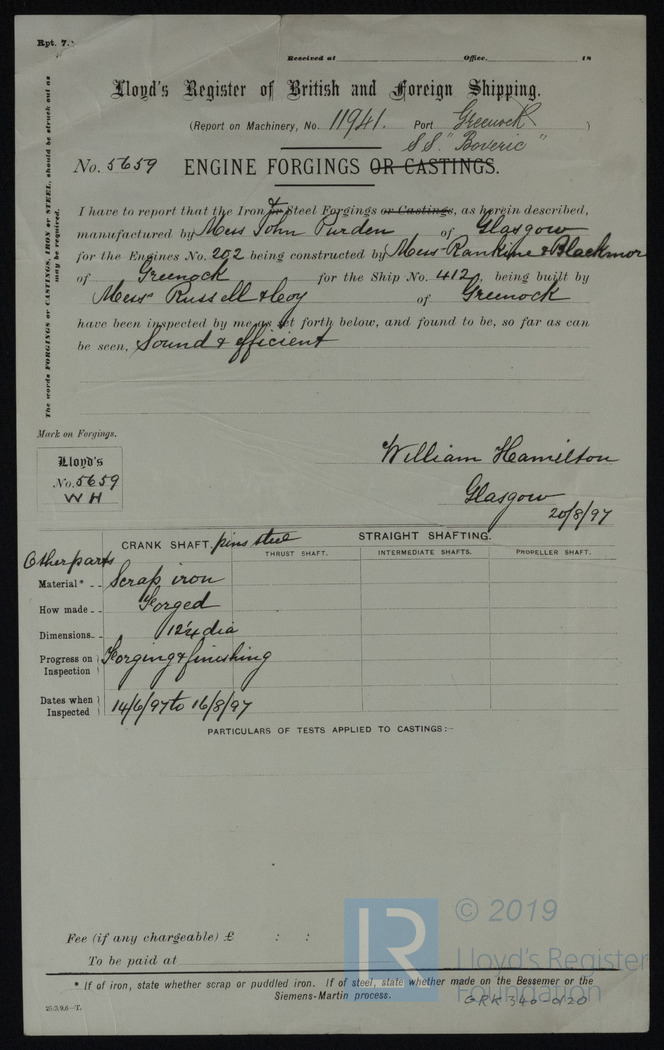 Rpt. 7.
Received at Office. 18
Lloyd's Register of British and Foreign Shipping.
(Report on Machinery, No. 11941. Port Greenock )
S.S. "Boveric"
No. 5659 ENGINE FORGINGS OR CASTINGS.
The words FORGINGS or CASTINGS, IRON or STEEL, should be struck out as may be required.
I have to report that the Iron or & Steel Forgings or Castings, as herein described,
manufactured by Mess John Purden of Glasgow
for the Engines No. 202 being constructed by Mess Rankine & Blackmor
of Greenock for the Ship No. 412, being built by
Mess Russell & Coy of Greenock
have been inspected by me as set forth below, and found to be, so far as can
be seen, Sound & efficient
Mark on Forgings.
Lloyd's
No. 5659
WH
William Heamilton
Glasgow
20/8/97
CRANK SHAFT, pins steel STRAIGHT SHAFTING.
THRUST SHAFT. INTERMEDIATE SHAFTS. PROPELLER SHAFT.
Other parts
Material* Scrap iron
How made Forged
Dimensions 12¼ dia
Progress on Inspection Forging & finishing
Dates when Inspected 14/6/97 to 16/8/97
PARTICULARS OF TESTS APPLIED TO CASTINGS:-
Fee (if any chargeable) £ : :
To be paid at
* If of iron, state whether scrap or puddled iron. If of steel, state whether made on the Bessemer or the
Siemens-Martin process.
25.3.9.6—T.
GRK 340-0120
© 2019
Lloyd's Register
Foundation
LR